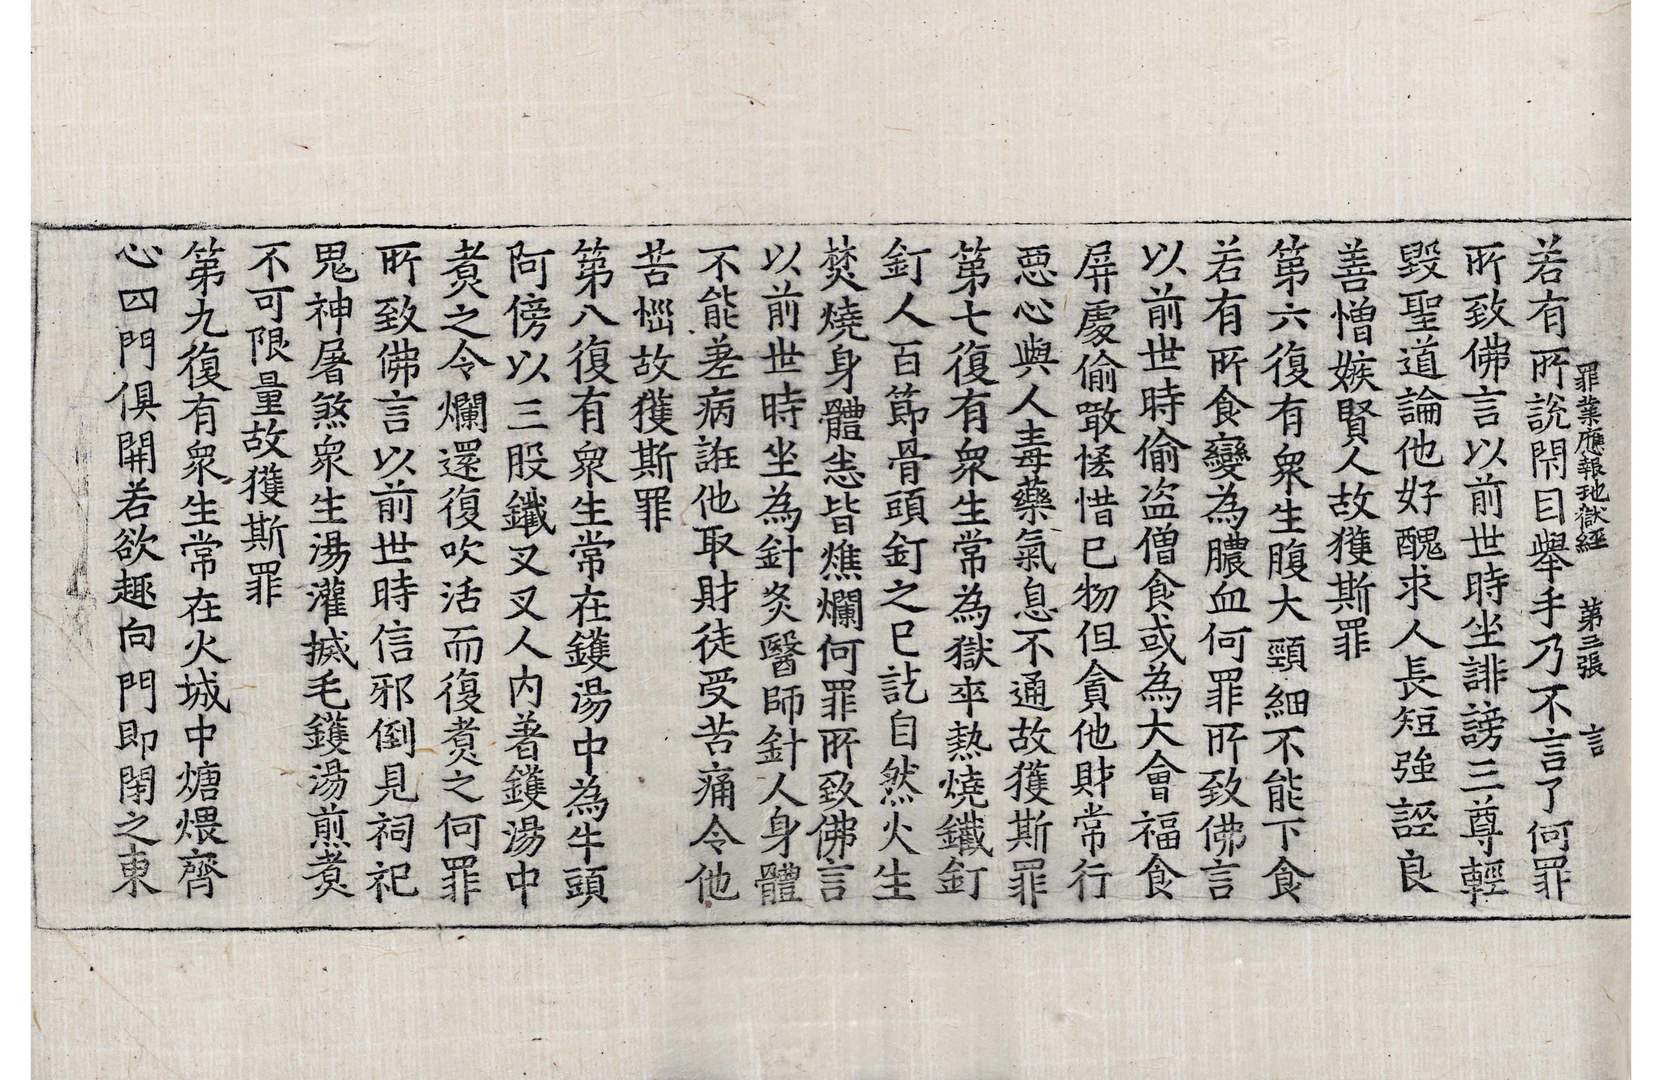 罪業應報地獄經 第三張 言
若有所說閇目舉手乃不言了何罪
所致佛言以前世時坐誹謗三尊輕
毀聖道論他好醜求人長短強誣良
善憎嫉賢人故獲斯罪
第六復有衆生腹大頸細不能下食
若有所食變為膿血何罪所致佛言
以前世時偷盗僧食或為大會福食
屏處偷噉悋惜己物但貪他財常行
惡心與人毒藥氣息不通故獲斯罪
第七復有衆生常為獄卒熱燒鐵釘
釘人百節骨頭釘之已訖自然火生
焚燒身體悉皆燋爛何罪所致佛言
以前世時坐為針灸醫師針人身體
不能差病誑他取財徒受苦痛令他
苦惱故獲斯罪
第八復有衆生常在鑊湯中為牛頭
阿傍以三股鐵叉叉人內著鑊湯中
煮之令爛還復吹活而復煮之何罪
所致佛言以前世時信邪倒見祠祀
鬼神屠煞衆生湯灌搣毛鑊湯煎煮
不可限量故獲斯罪
第九復有衆生常在火城中煻煨齊
心四門俱開若欲趣向門門即閇之東